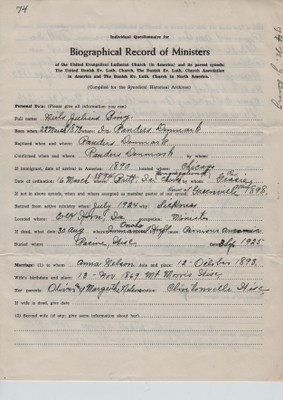 74
Individual Questionnaire for
Biographical Record of Ministers
of the United Evangelical Lutheran Church (in America) and its parent synods:
The United Danish Ev. Luth. Church, The Danish Ev. Luth. Church Association
in America and The Danish Ev. Luth. Church in North America.
(Compiled for the Synodical Historical Archives)
Personal Data: (Please give all information you can)
Full name: Niels Julius
Born when: where: In Randers Danmark
Baptized when and where: Randers Danmark
Confirmed when and where: Randers Danmark by whom:
If immigrated, date of arrival in America: 1890 Located where: Chicago
Date of ordination: 16 March by whom:
If not in above synods, when and where accepted as member pastor of our synod: Greenville 1898.
Retired from active ministry when: July 1924 why: Sickness
Located where: Ia occupation: Minister
If dead, what date: 30 Aug where: of what: Pernicious Anaemia
Buried where: Racine, Wisc. date: 1925
Marriage: (1) to whom: Anna Nelson date and place: 12 October 1898.
Wife's birthdate and place: 18 - Nov 1869 Mt Morris Wisc
Her parents: Oliver & Margrethe Nelson occupation: Clintonville Wisc.
If wife is dead, give date
(2) Second wife (if any; give same information about her):